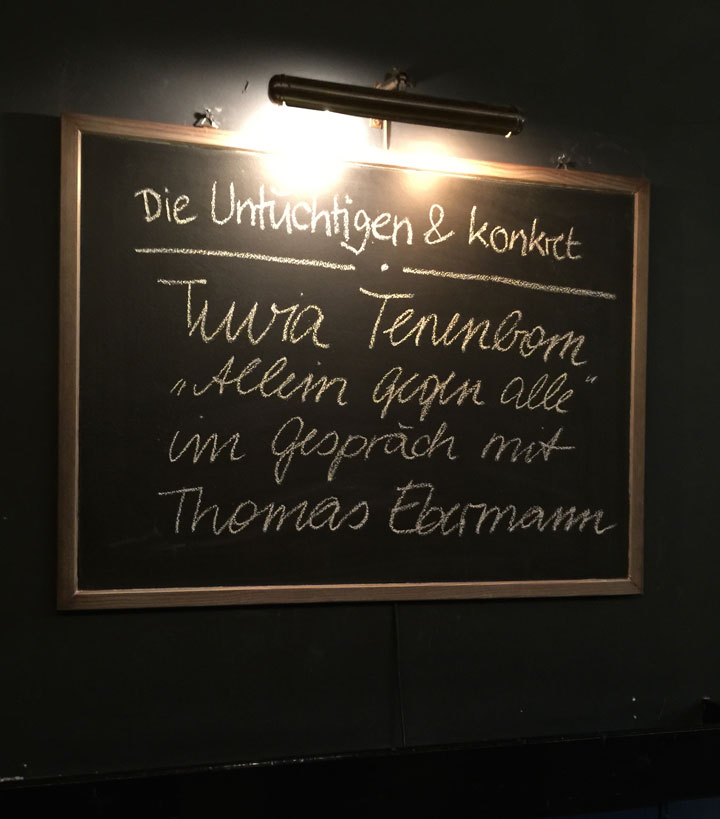 Die Untüchtigen & konkret
Tuvia Tenenbom
„Allein gegen alle“
im Gespräch mit
Thomas Ebermann